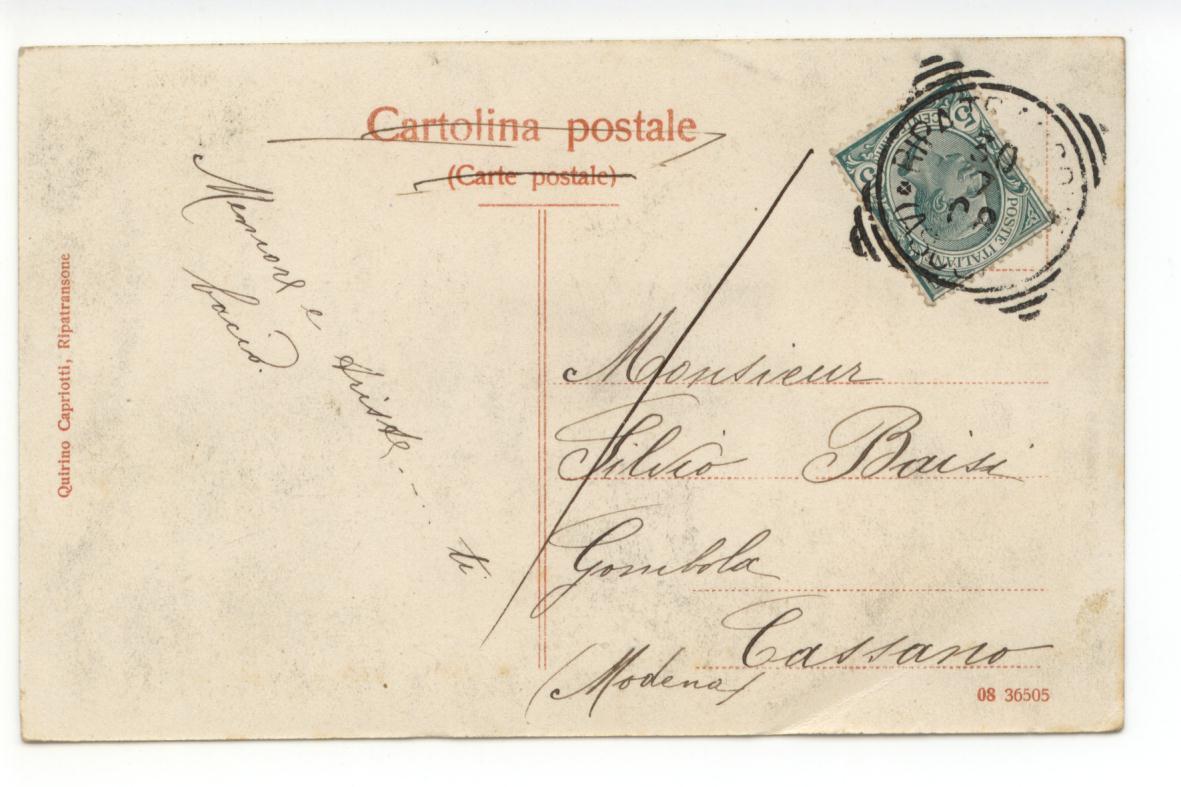 Cartolina postale
(Carte postale)
Memore e triste... ti
bacio.
Quirino Capriotti, Ripatransone
POSTE ITALIANE
Monsieur
Silvio Baisi
Gombola
Cassano
(Modena)
08 36505